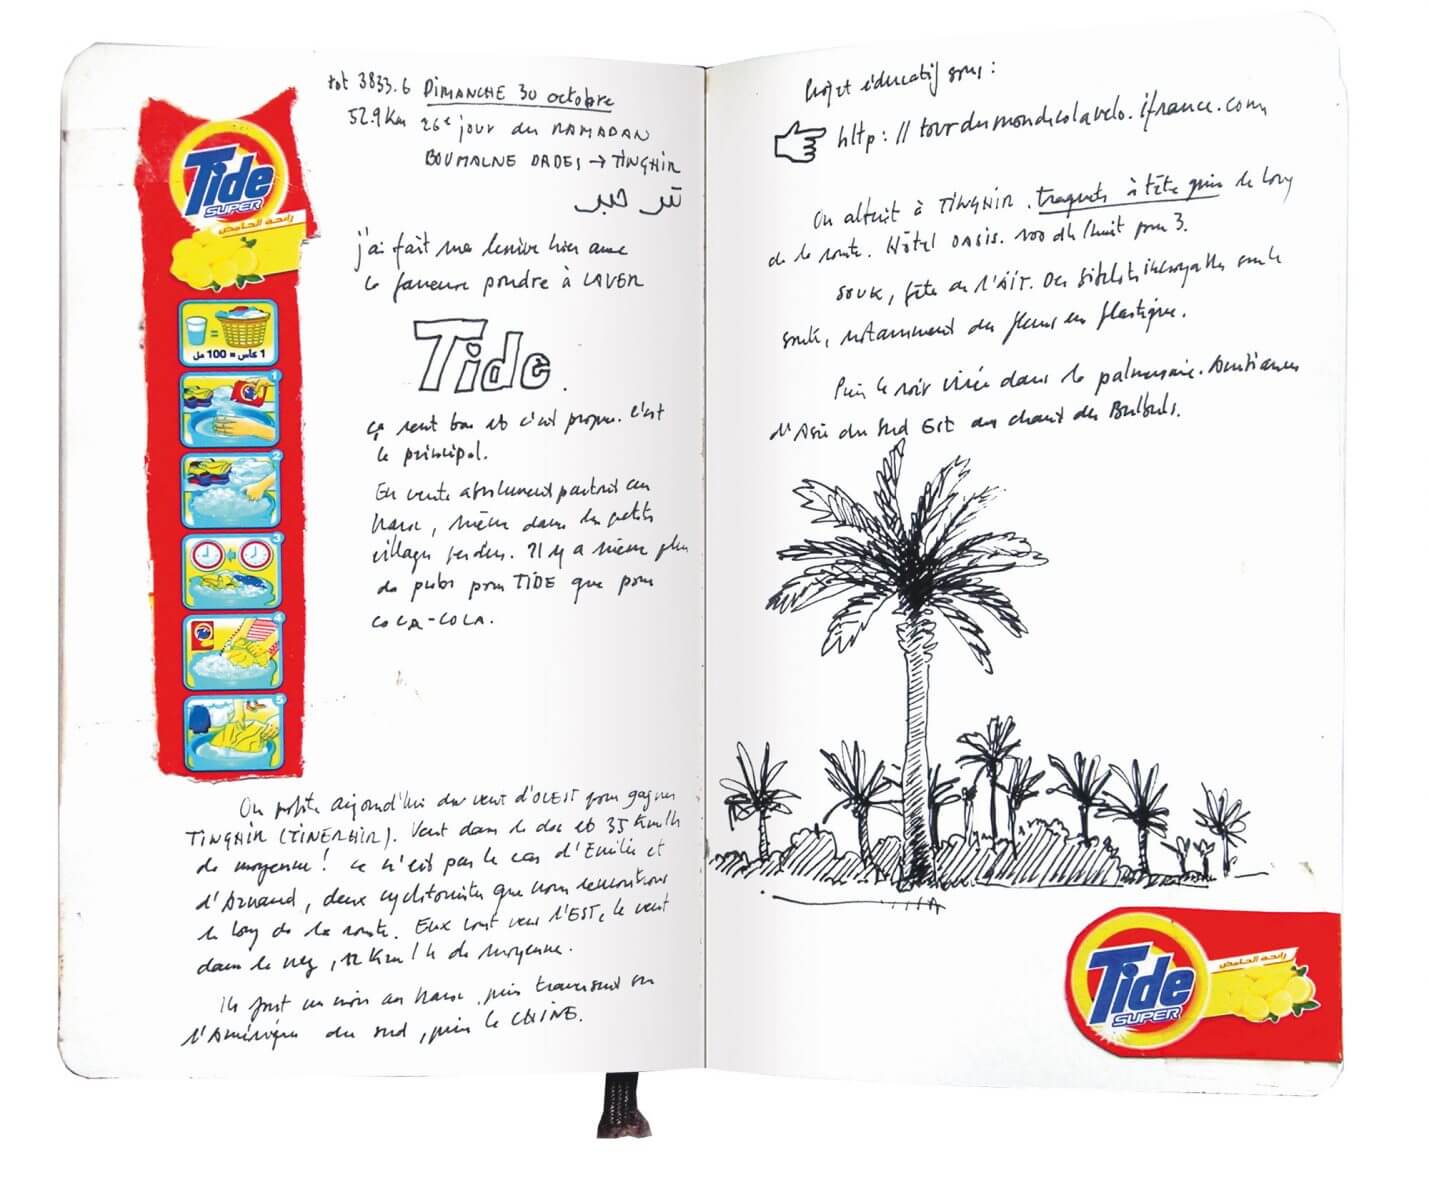 Tide
SUPER
رائحة الحامض
1 كأس = 100 مل
1
2
3
4
5
tot 3833.6 DIMANCHE 30 octobre
52.9 Km 26e jour du RAMADAN
BOUMALNE DADES → TINGHIR
j'ai fait ma lessive hier avec
la fameuse poudre à LAVER
Tide.
ça sent bon et c'est propre. C'est
le principal.
En vente absolument partout au
Maroc, même dans les petits
villages perdus. Il y a même plus
de pubs pour TIDE que pour
COCA-COLA.
On profite aujourd'hui du vent d'OUEST pour gagner
TINGHIR (TINERHIR). Vent dans le dos et 35 Km/h
de moyenne! Ce n'est pas le cas d'Emilie et
d'Arnaud, deux cyclotouristes que nous rencontrons
le long de la route. Eux vont vers l'EST, le vent
dans le nez, 12 Km/h de moyenne.
Ils font un mois au Maroc, puis traversent
l'Amérique du sud, puis la CHINE.
Projet éducatif sous:
http://tourdumondeolavelo.ifrance.com
On atterrit à TINGHIR. traquets à tête grise le long
de la route. Hôtel OASIS. 100 dh l'nuit pour 3.
SOUK, fête de l'AÏT. Des bibelots incroyables sur le
souk, notamment des fleurs en plastique.
Puis le soir virée dans la palmeraie. Ambiances
d'Asie du Sud Est au chant des Bulbuls.
Tide
SUPER
رائحة الحامض